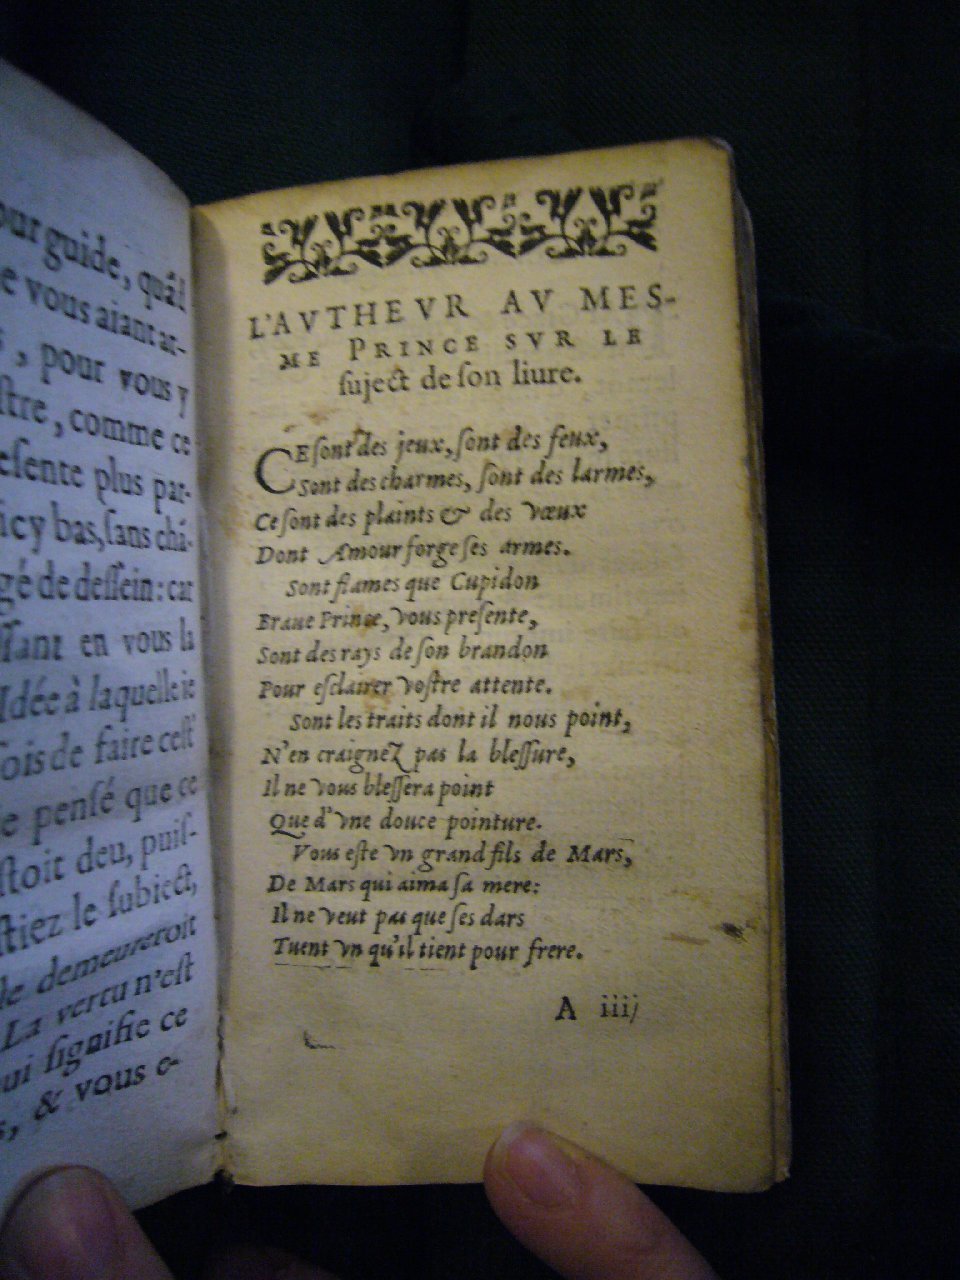 our guide, quãd
e vous aiant ar-
s, pour vous y
ſtre, comme ce
eſente plus par-
icy bas, ſans chã-
gé de deſſein: car
ſſant en vous la
Idée à laquelle ie
ois de faire ceſt
e penſé que ce
ſtoit deu, puiſ-
ſtiez le ſubiect,
le demeureroit
La vertu n'eſt
ui ſignifie ce
s, & vous e-
L'AVTHEVR AV MES-
ME PRINCE SVR LE
ſuject de ſon liure.
CE ſont des jeux, ſont des feux,
Sont des charmes, ſont des larmes,
Ce ſont des plaints & des vœux
Dont Amour forge ſes armes.
Sont flames que Cupidon
Braue Prince, vous preſente,
Sont des rays de ſon brandon
Pour eſclairer voſtre attente.
Sont les traits dont il nous point,
N'en craignez pas la bleſſure,
Il ne vous bleſſera point
Que d'vne douce pointure.
Vous eſte vn grand fils de Mars,
De Mars qui aima ſa mere:
Il ne veut pas que ſes dars
Tuent vn qu'il tient pour frere.
A iiij